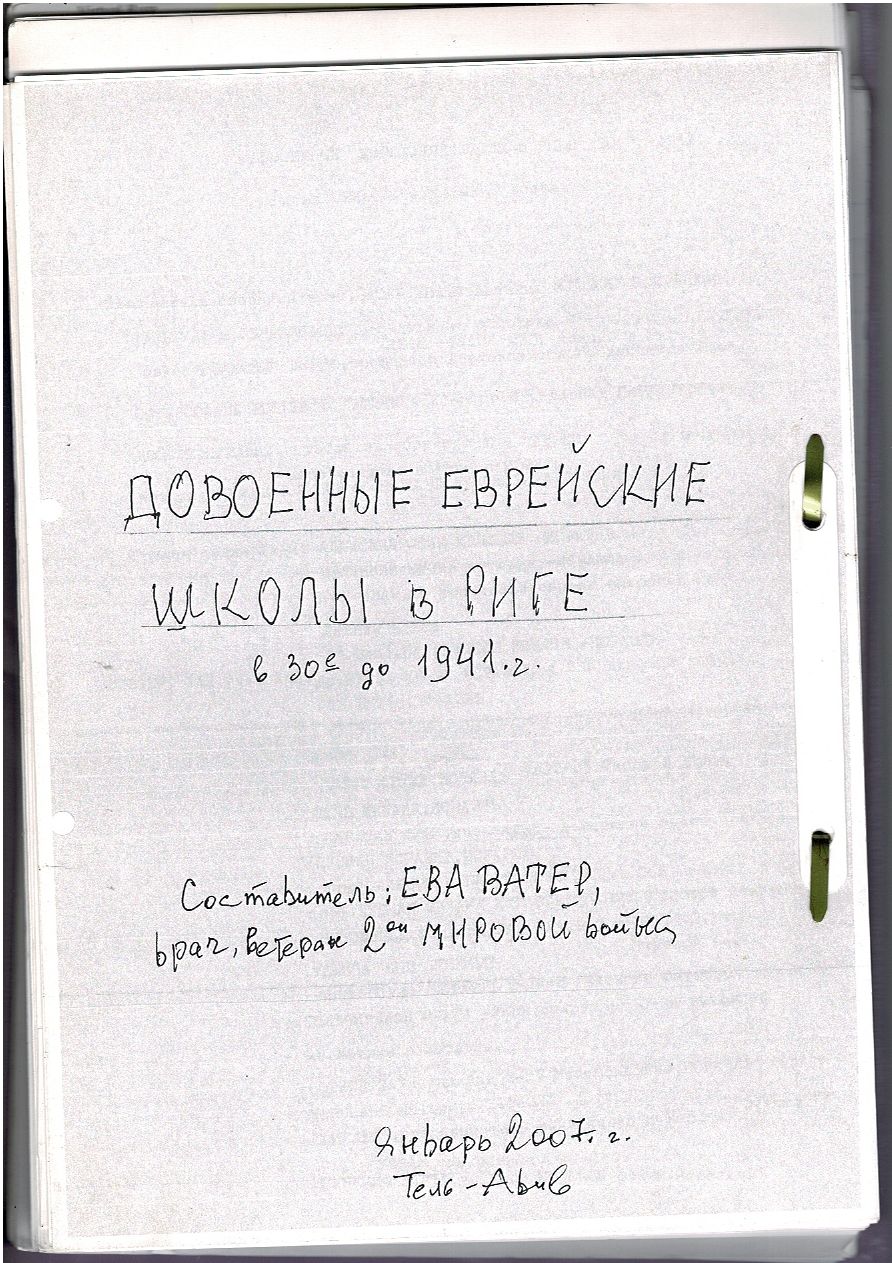 ДОВОЕННЫЕ ЕВРЕЙСКИЕ
ШКОЛЫ в РИГЕ
в 30е до 1941.г.
Составитель: ЕВА ВАТЕР,
врач, ветеран 2ой МИРОВОЙ войны
Январь 2007.г.
Тель-Авив